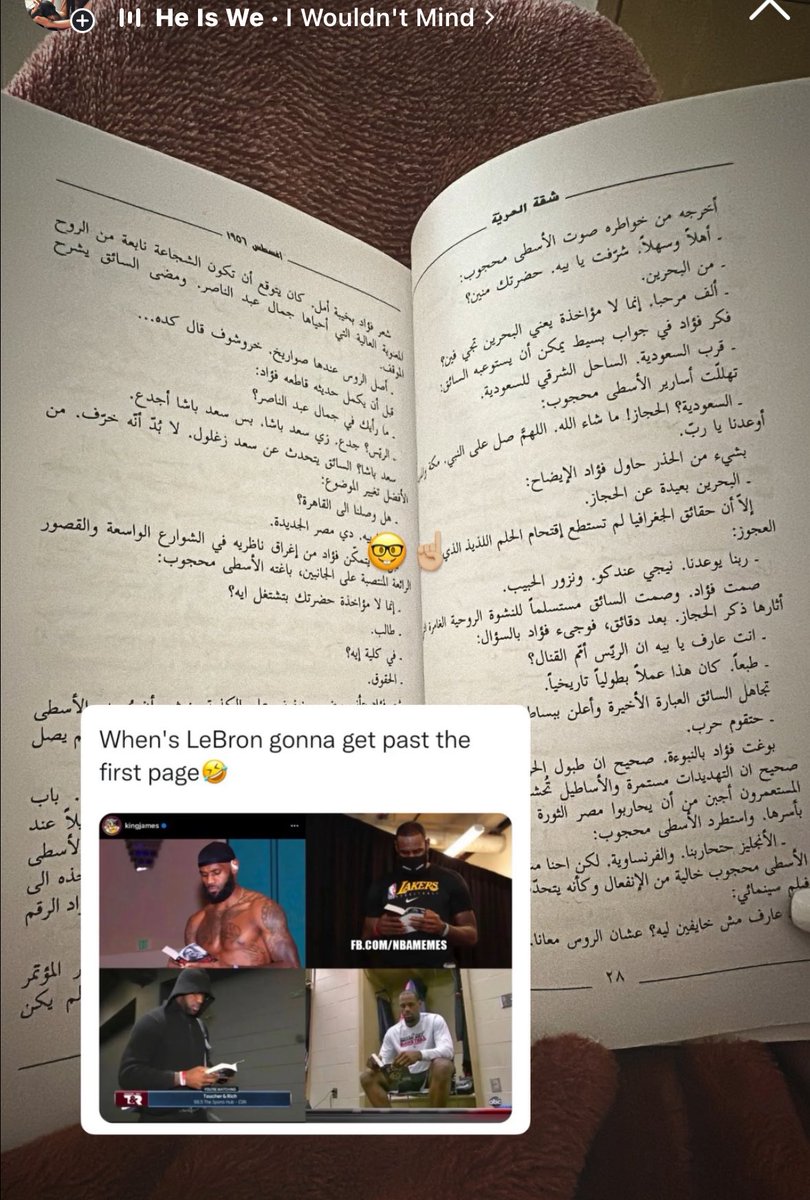 He Is We · I Wouldn't Mind >
شقة الحريّة
أخرجه من خواطره صوت الأسطى محجوب:
- أهلاً وسهلاً. شرّفت يا بيه. حضرتك منين؟
- من البحرين.
- ألف مرحبا. إنما لا مؤاخذة يعني البحرين تجي فين؟
فكر فؤاد في جواب بسيط يمكن أن يستوعبه السائق:
- قرب السعودية. الساحل الشرقي للسعودية.
تهللّت أسارير الأسطى محجوب:
- السعودية؟ الحجاز! ما شاء الله. اللهمّ صل على النبي. مكة
أوعدنا يا ربّ.
بشيء من الحذر حاول فؤاد الإيضاح:
- البحرين بعيدة عن الحجاز.
إلاّ أن حقائق الجغرافيا لم تستطع إقتحام الحلم اللذيذ الذي
العجوز:
- ربنا يوعدنا. نيجي عندكو. ونزور الحبيب.
صمت فؤاد. وصمت السائق مستسلماً للنشوة الروحية
أثارها ذكر الحجاز. بعد دقائق، فوجىء فؤاد بالسؤال:
- انت عارف يا بيه ان الريّس أمّم القنال؟
- طبعاً. كان هذا عملاً بطولياً تاريخياً.
تجاهل السائق العبارة الأخيرة وأعلن
- حتقوم حرب.
بوغت فؤاد بالنبوءة. صحيح ان طبول
صحيح ان التهديدات مستمرة والأساطيل
المستعمرون أجبن من أن يحاربوا مصر الثورة
بأسرها. واستطرد الأسطى محجوب:
- الأنجليز حتحاربنا. والفرنساوية. لكن احنا
الأسطى محجوب خالية من الإنفعال وكأنه
فيلم سينمائي:
عارف مش خايفين ليه؟ عشان الروس معانا.
٢٨
اغسطس ١٩٥٦
شعر فؤاد بخيبة أمل. كان يتوقع أن تكون الشجاعة نابعة من الروح
المعنوية العالية التي أحياها جمال عبد الناصر. ومضى السائق يشرح
الموقف.
- أصل الروس عندها صواريخ. خروشوف قال كده...
قبل أن يكمل حديثه قاطعه فؤاد:
- ما رأيك في جمال عبد الناصر؟
- الريّس؟ جدع. زي سعد باشا. بس سعد باشا أجدع.
سعد باشا؟ السائق يتحدث عن سعد زغلول. لا بُدّ أنّه خرّف. من
الأفضل تغيير الموضوع:
- هل وصلنا الى القاهرة؟
بيه. دي مصر الجديدة.
يتمكّن فؤاد من إغراق ناظريه في الشوارع الواسعة والقصور
الرائعة المنتصبة على الجانبين، باغته الأسطى محجوب:
- إنما لا مؤاخذة حضرتك بتشتغل ايه؟
- طالب.
- في كلية إيه؟
- الحقوق.
الأسطى
يصل
باب
عند
الأسطى
الى
الرقم
المؤتمر
يكن
When's LeBron gonna get past the
first page🤣
kingjames
LAKERS
FB.COM/NBAMEMES
YOU'RE WATCHING
Toucher & Rich
abc